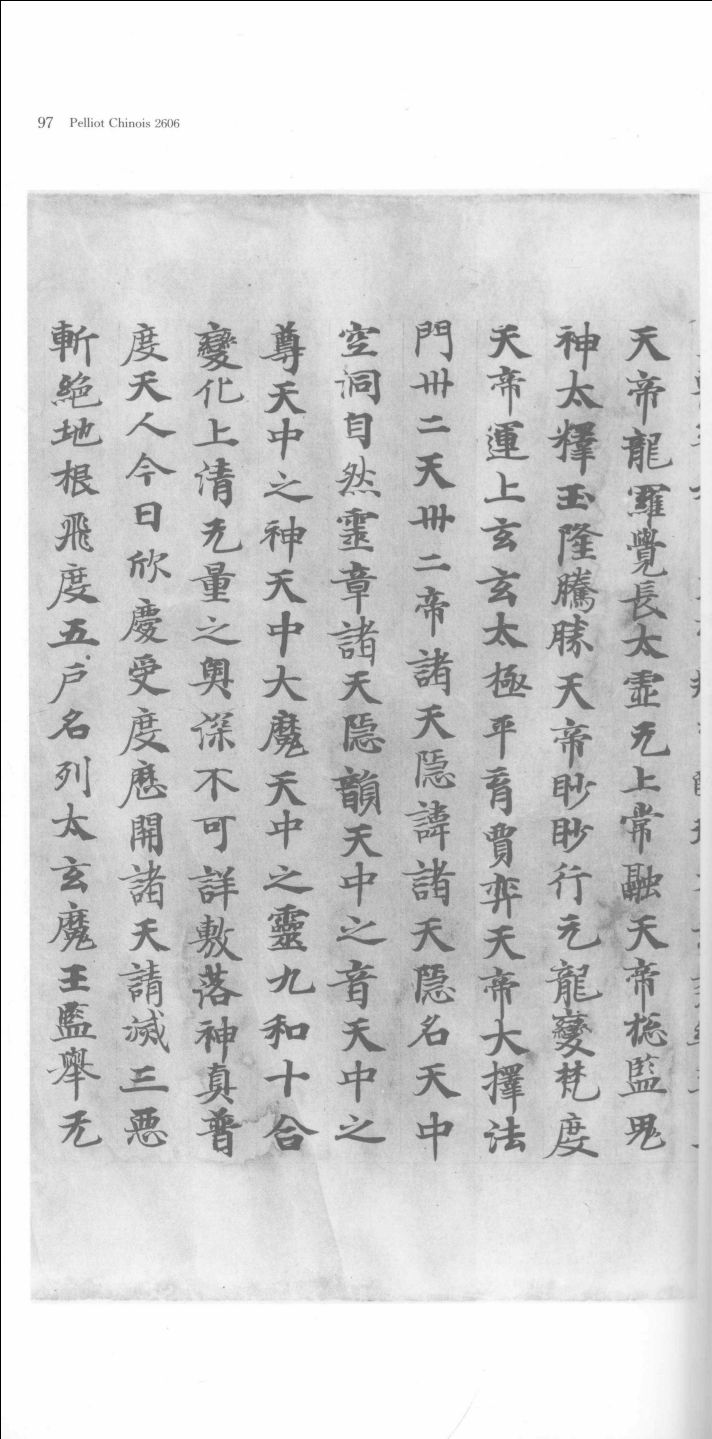 97 Pelliot Chinois 2606
天帝龍羅覺長太虛无上常融天帝揔監鬼
神太釋玉隆騰勝天帝眇眇行元龍變梵度
天帝運上玄玄太極平育賈弈天帝大擇法
門卅二天卅二帝諸天隱諱諸天隱名天中
空洞自然靈章諸天隱韻天中之音天中之
尊天中之神天中大魔天中之靈九和十合
變化上清无量之奥深不可詳敷落神真普
度天人今日欣慶受度歷開諸天請滅三惡
斬絕地根飛度五户名列太玄魔王監舉无